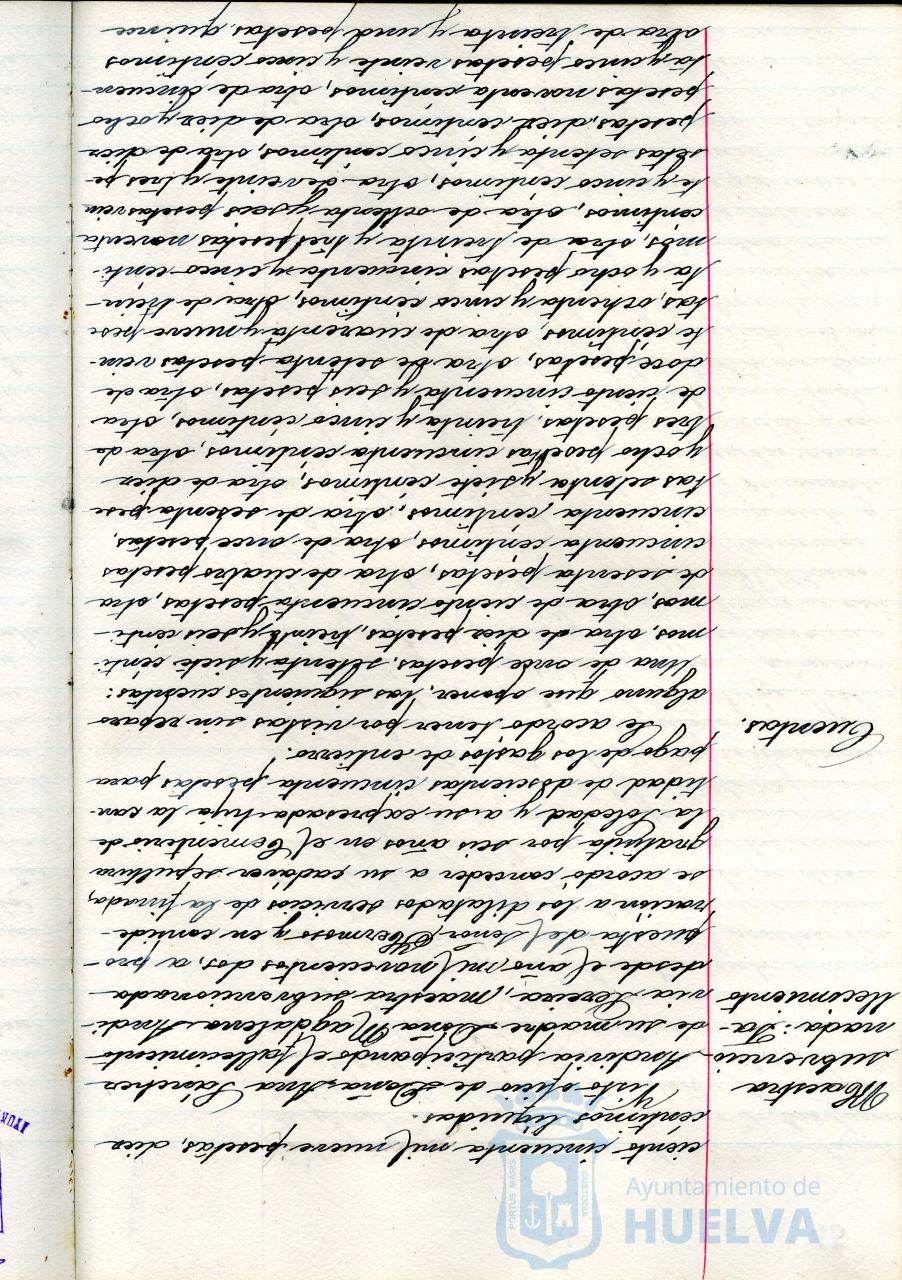 ciento cincuenta mil nueve pesetas, diez
céntimos líquidas.
Maestra
subvencio-
nada: Fa-
llecimiento
Visto oficio de Doña Ana Sánchez
Andivia participando el fallecimiento
de su madre Doña Magdalena Andi-
via Pereira, maestra subvencionada
desde el año mil novecientos dos, a pro-
puesta del Señor Hermoso y en conside-
ración a los dilatados servicios de la finada,
se acordó conceder a su cadáver sepultura
gratuita por seis años en el Cementerio de
la Soledad y a su expresada hija la can-
tidad de doscientas cincuenta pesetas para
pago de los gastos de entierro.
Cuentas.
Se acordó tener por vistas sin reparo
alguno que oponer, las siguientes cuentas:
Una de once pesetas, setenta y siete cénti-
mos, otra de diez pesetas, treinta y seis cénti-
mos, otra de ciento cincuenta pesetas, otra
de sesenta pesetas, otra de cuatro pesetas
cincuenta céntimos, otra de once pesetas,
cincuenta céntimos, otra de sesenta pese
tas setenta y siete céntimos, otra de diez
y ocho pesetas cincuenta céntimos, otra de
tres pesetas, treinta y cinco céntimos, otra
de ciento cincuenta y seis pesetas, otra de
doce pesetas, otra de setenta pesetas vein-
te céntimos, otra de cuarenta y nueve pese
tas, ochenta y cinco céntimos, otra de trein-
ta y ocho pesetas cincuenta y cinco cénti-
mos, otra de treinta y tres pesetas noventa
céntimos, otra de ochenta y seis pesetas vein
te y cinco céntimos, otra de veinte y tres pe
setas setenta y cinco céntimos, otra de diez
pesetas, diez céntimos, otra de diez y ocho
pesetas noventa céntimos, otra de cincuen-
ta y cinco pesetas veinte y cinco céntimos
otra de treinta y una pesetas, quince
PORTUS MARIS
CUSTODIA
Ayuntamiento de
HUELVA